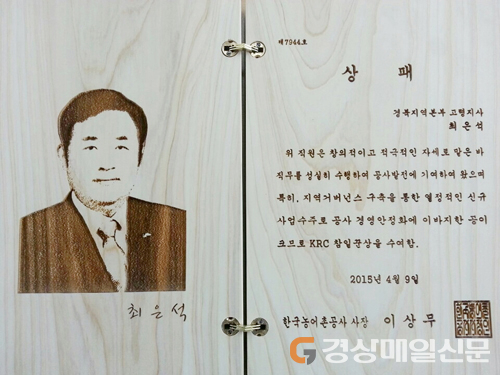 제7944호
상 패
경북지역본부 고령지사
최은석
위 직원은 창의적이고 적극적인 자세로 맡은 바
직무를 성실히 수행하여 공사발전에 기여하여 왔으며
특히, 지역거버넌스 구축을 통한 열정적인 신규
사업수주로 공사 경영안정화에 이바지한 공이
크므로 KRC 참일꾼상을 수여함.
2015년 4월 9일
한국농어촌공사 사장 이상무
최은석
경상매일신문